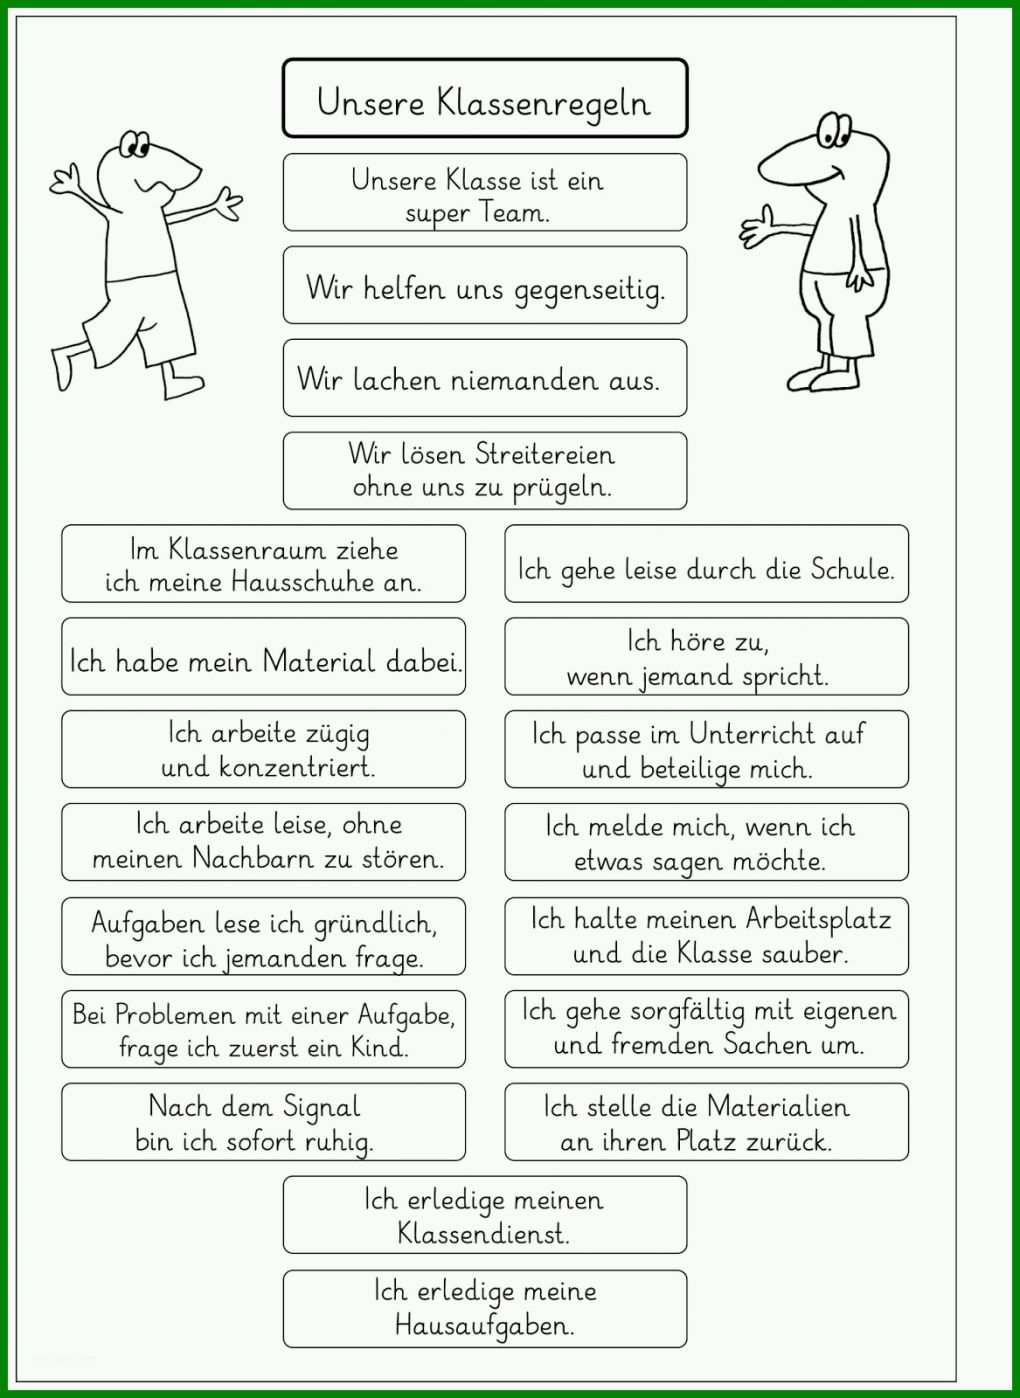 Unsere Klassenregeln
Unsere Klasse ist ein
super Team.
Wir helfen uns gegenseitig.
Wir lachen niemanden aus.
Wir lösen Streitereien
ohne uns zu prügeln.
Im Klassenraum ziehe
ich meine Hausschuhe an.
Ich gehe leise durch die Schule.
Ich habe mein Material dabei.
Ich höre zu,
wenn jemand spricht.
Ich arbeite zügig
und konzentriert.
Ich passe im Unterricht auf
und beteilige mich.
Ich arbeite leise, ohne
meinen Nachbarn zu stören.
Ich melde mich, wenn ich
etwas sagen möchte.
Aufgaben lese ich gründlich,
bevor ich jemanden frage.
Ich halte meinen Arbeitsplatz
und die Klasse sauber.
Bei Problemen mit einer Aufgabe,
frage ich zuerst ein Kind.
Ich gehe sorgfältig mit eigenen
und fremden Sachen um.
Nach dem Signal
bin ich sofort ruhig.
Ich stelle die Materialien
an ihren Platz zurück.
Ich erledige meinen
Klassendienst.
Ich erledige meine
Hausaufgaben.